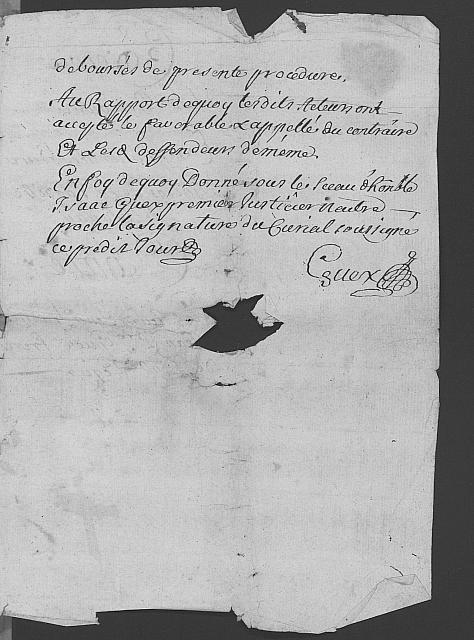 débourses de presente procedure.
Au Rapport dequoy lesdits Acteurs ont
accepté le favorable & appellé du contraire
Et Lesd. deffendeurs de même.
En foy dequoy Donné sous le sceau d'honble
Isaac Guex premier Justicier neutre
proche la signature du Curial soussigné
ce predit Jour
Guex